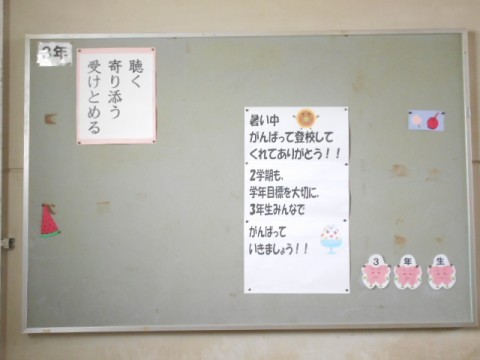 3年
聴く
寄り添う
受けとめる
暑い中
がんばって登校して
くれてありがとう！！
2学期も、
学年目標を大切に、
3年生みんなで
がんばって
いきましょう！！
3年生